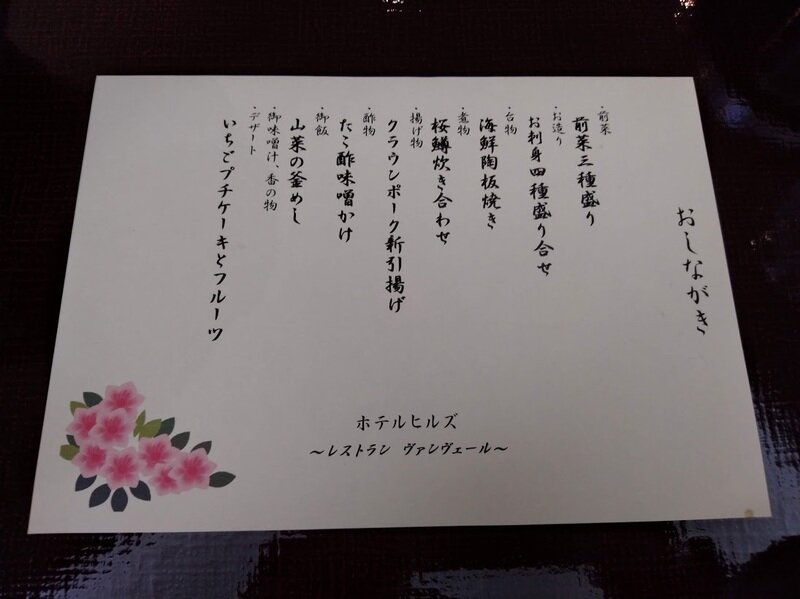 おしながき
・前菜
前菜三種盛り
・お造り
お刺身四種盛り合せ
・台物
海鮮陶板焼き
・煮物
桜鱒炊き合わせ
・揚げ物
クラウンポーク新引揚げ
・酢物
たこ酢味噌かけ
・御飯
山菜の釜めし
・御味噌汁、香の物
・デザート
いちごプチケーキとフルーツ
ホテルヒルズ
～レストラン ヴァンヴェール～